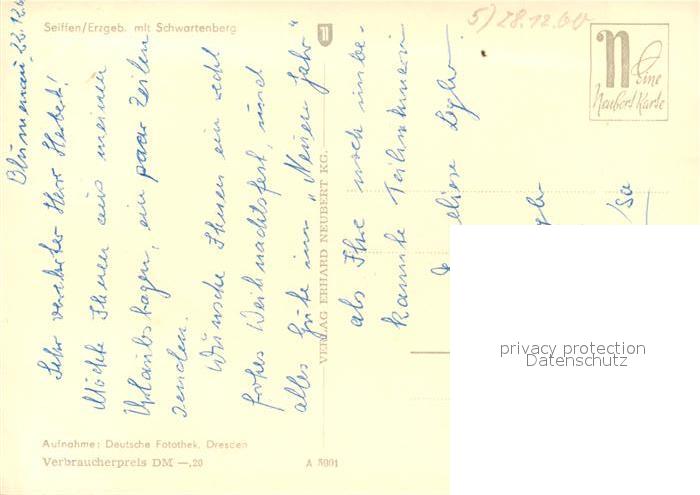 Seiffen/Erzgeb. mit Schwartenberg
5) 28.12.60
Eine
Neubert Karte
Blumenau, 22.12.6
Sehr verehrter Herr Herbert!
Möchte Ihnen aus meinen
Urlaubstagen, ein paar Zeilen
senden.
Wünsche Ihnen ein recht
frohes Weihnachtsfest, und
alles Gute im "Neuen Jahr"
als Ihre noch unbe-
kannte Teilnehmerin
VERLAG ERHARD NEUBERT KG.
privacy protection
Datenschutz
Aufnahme: Deutsche Fotothek, Dresden
Verbraucherpreis DM —,20
A 5001